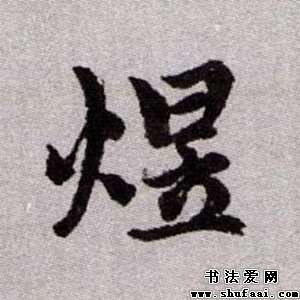 煜
书法爱网
www.shufaai.com